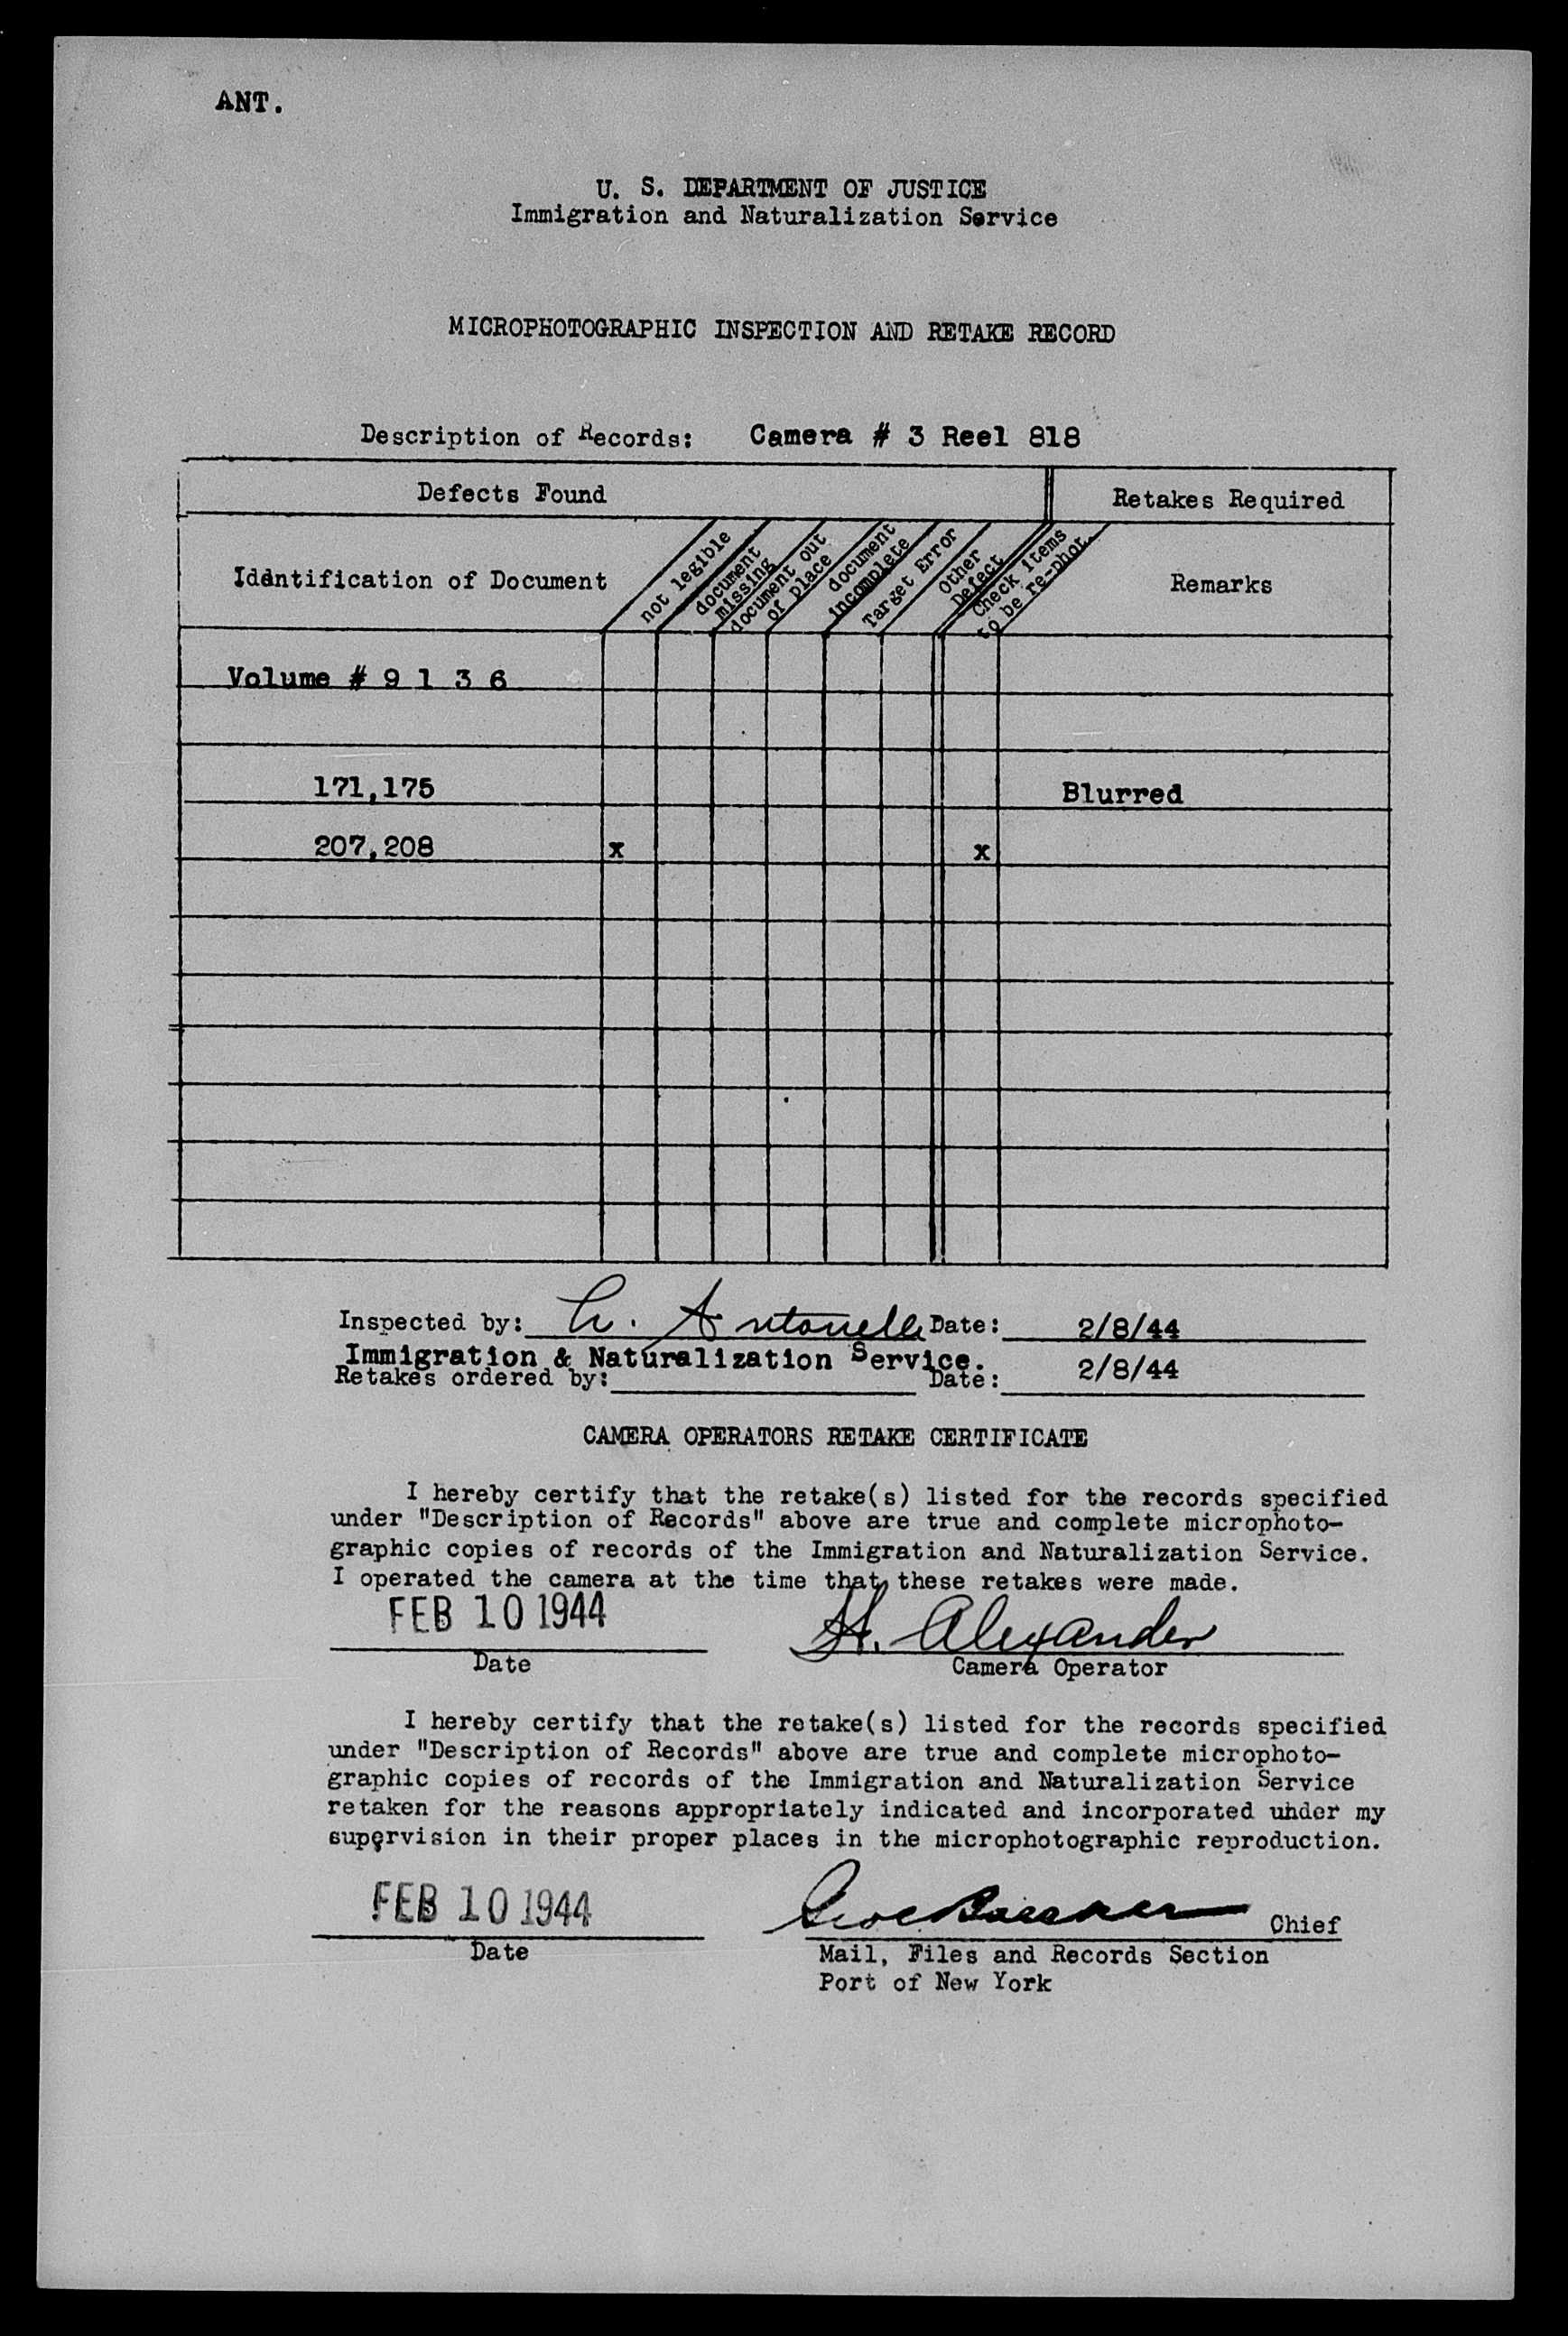 ANT.
U. S. DEPARTMENT OF JUSTICE
Immigration and Naturalization Service
MICROPHOTOGRAPHIC INSPECTION AND RETAKE RECORD
Description of Records: Camera # 3 Reel 818
Defects Found
Retakes Required
Identification of Document
not legible
document missing
document out of place
document incomplete
Target Error
Other Defect
Check items to be re-phot.
Remarks
Volume # 9 1 3 6
171,175 Blurred
207,208 x x
Inspected by: Antonelli Date: 2/8/44
Immigration & Naturalization Service.
Retakes ordered by: Date: 2/8/44
CAMERA OPERATORS RETAKE CERTIFICATE
I hereby certify that the retake(s) listed for the records specified
under "Description of Records" above are true and complete microphoto-
graphic copies of records of the Immigration and Naturalization Service.
I operated the camera at the time that these retakes were made.
FEB 10 1944 H. Alexander
Date Camera Operator
I hereby certify that the retake(s) listed for the records specified
under "Description of Records" above are true and complete microphoto-
graphic copies of records of the Immigration and Naturalization Service
retaken for the reasons appropriately indicated and incorporated under my
supervision in their proper places in the microphotographic reproduction.
FEB 10 1944 Chief
Date Mail, Files and Records Section
Port of New York